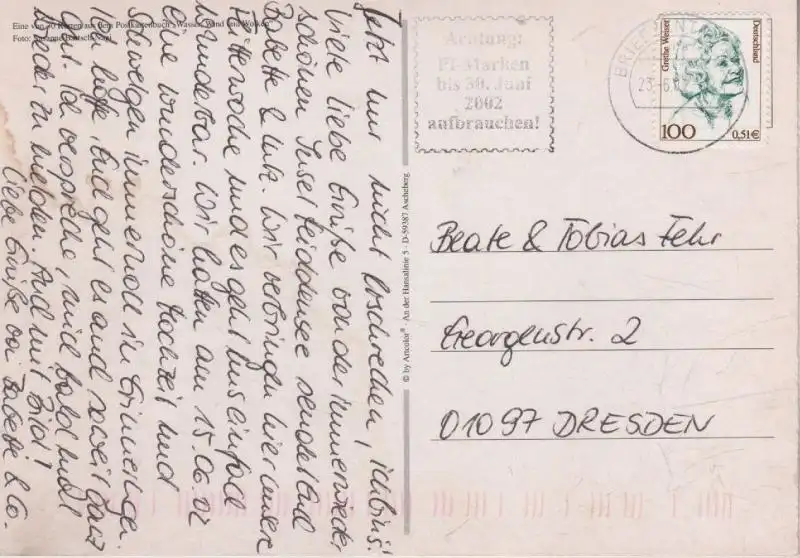 Eine von 30 Karten aus dem Postkartenbuch »Wasser, Wind und Wolken«
Foto:
Jetzt nur nicht erschrecken, ich bin's!
Viele liebe Grüße von der immer wieder
schönen Insel Hiddensee sendet Euch
Babette & Lutz. Wir verbringen hier unsere
Flitterwoche und es geht uns einfach
wunderbar. Wir hatten am 15.06.02
eine wunderschöne Hochzeit und
schwelgen immer noch in Erinnerungen.
Ich hoffe, Euch geht es auch soweit ganz
gut. Ich verspreche, mich bald mal
wieder zu melden. Auch mit Bild!
Liebe Grüße von Babette & Co.
© by Ancolor® · An der Hansalinie 5 · D-59387 Ascheberg
Achtung:
Pf-Marken
bis 30. Juni
2002
aufbrauchen!
BRIEF
23.-6.
Grethe Weiser
Deutschland
100
0,51€
Beate & Tobias Fehr
Georgenstr. 2
01097 DRESDEN